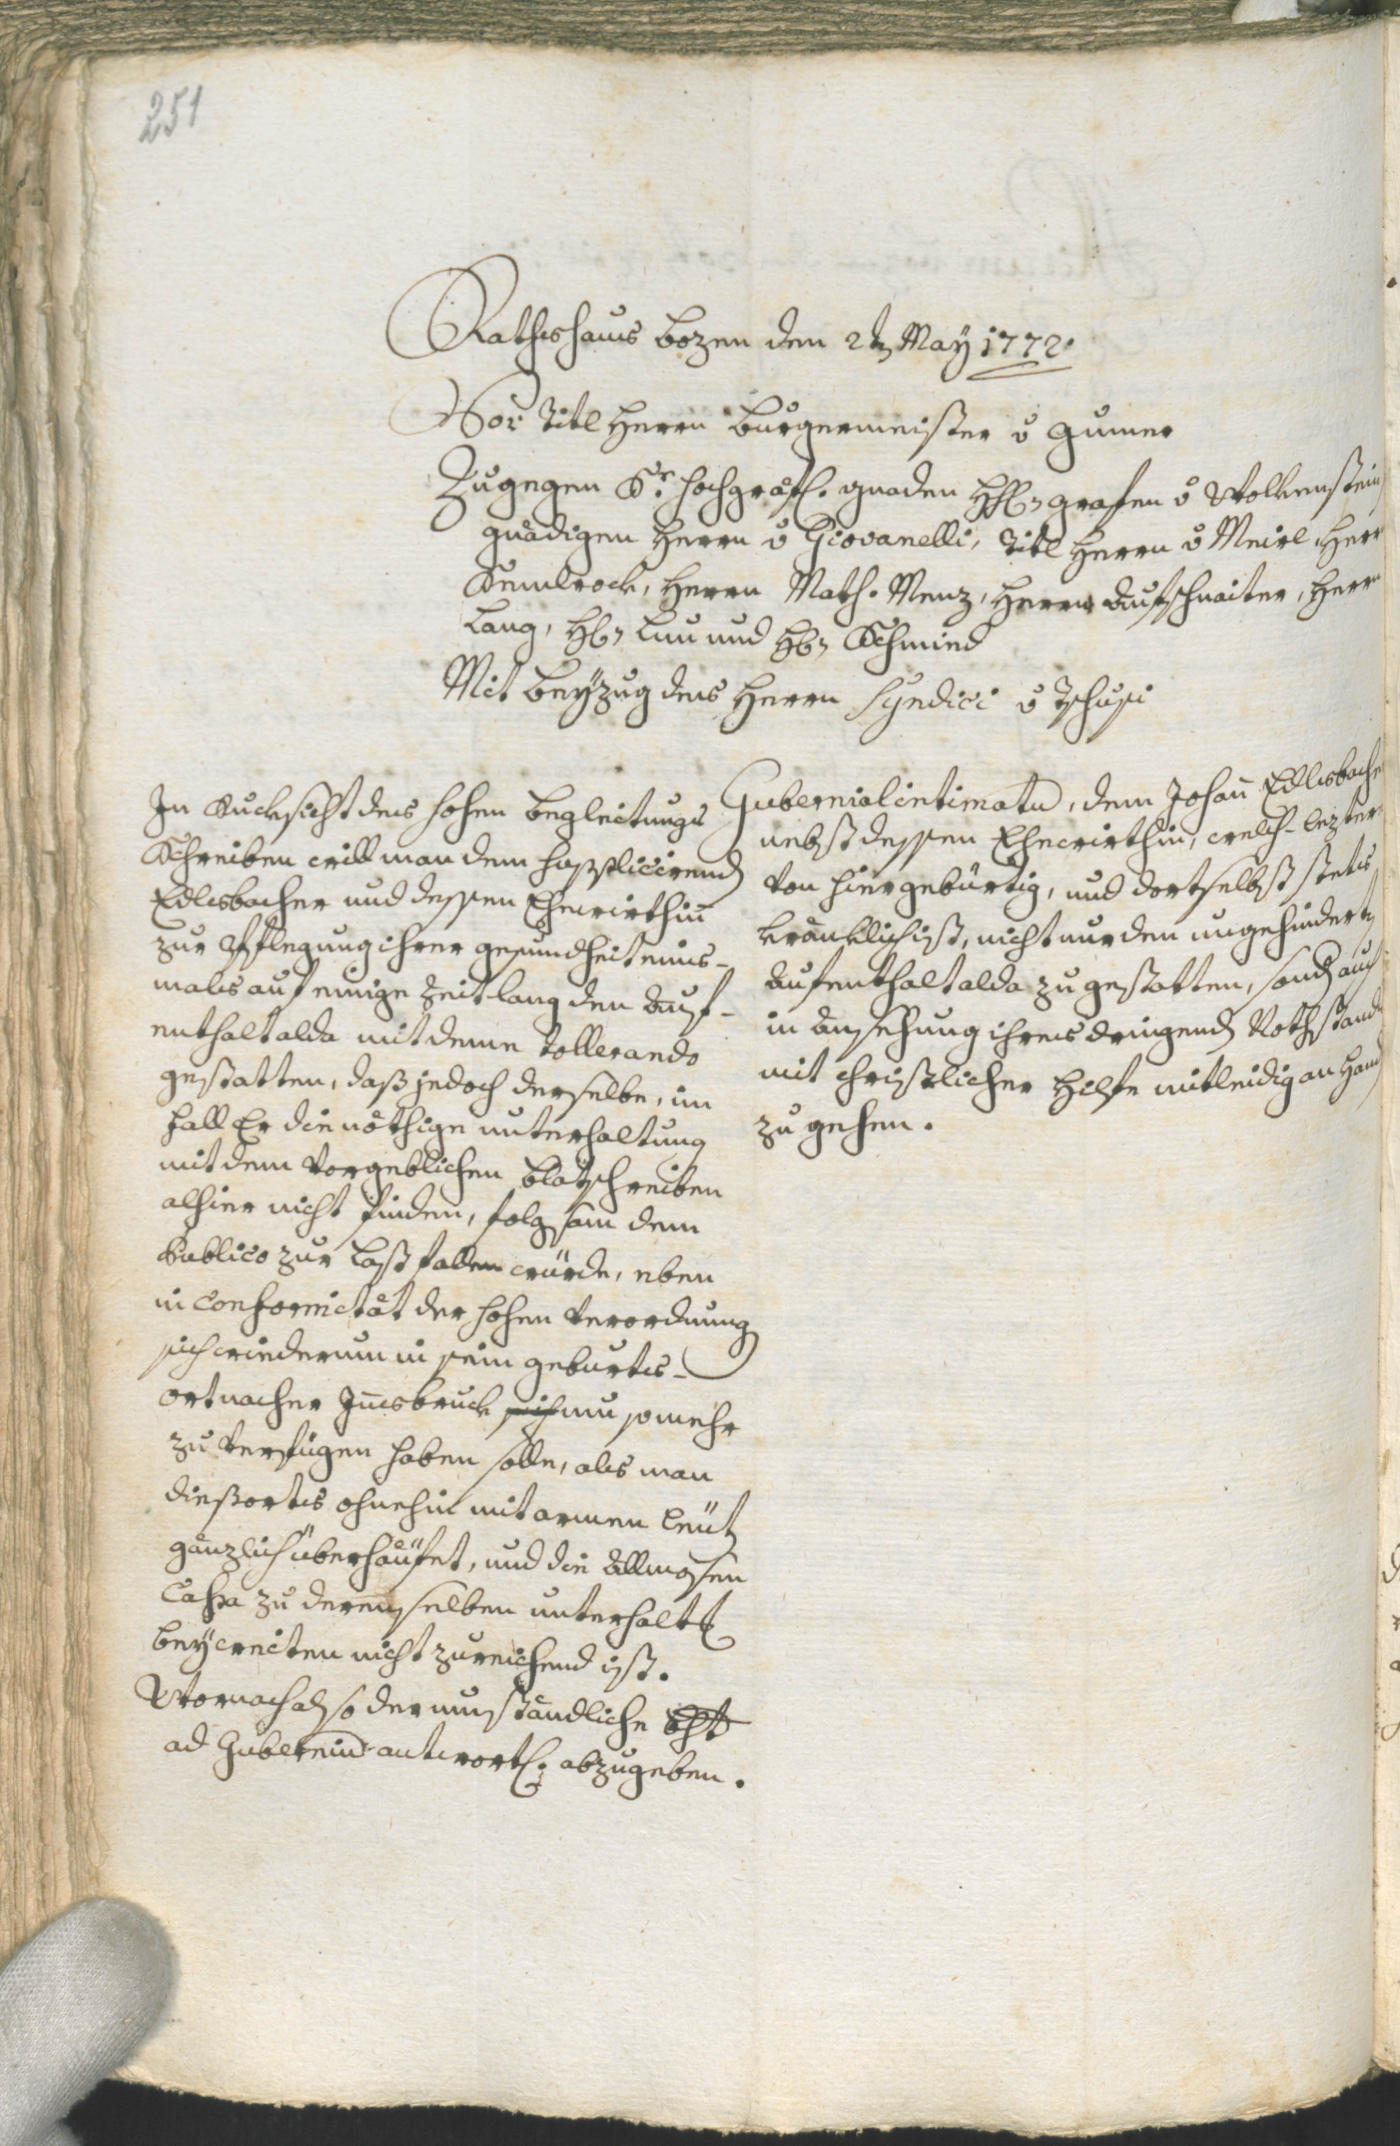 251
Rathshaus bozen den 2tn May 1772.
Vor Titl Herrn burgermeister v gumer
Zugegen Sr. hochgräfl. gnaden Hhln grafen v Wolkenstein
gnädigen Herrn v Giovanelli, Titl Herrn v Meirl, Herr
Kemlrock, Herrn Math. Menz, Herrn Aufschnaiter, Herrn
Lang, Hhln Luu und Hhln Schmied
Mit beyzug des Herrn Syndici v Tschusi
In Rucksicht des hohen begleitungs
Schreiben will man dem supplicirend
Edlsbacher und dessen Ehewirthin
zur Pflegung ihrer gesundheit eins-
mals auf einige Zeit lang den Auf-
enthalt alda mit deme tollerando
gestatten, daß jedoch derselbe, im
fall Er die nöthige unterhaltung
mit dem vorgeblichen blatschreiben
alhier nicht finden, folgsam dem
Publico zur Last fallen würde, eben
in Conformitet der hohen verordnung
sich wiederum in sein geburts-
ort nacher Insbruck sich um so mehr
zu verfügen haben solle, als man
diesorts ohnehin mit armen Leüt
gänzlich überhäufet, und die Allmosen
Cassa zu deren selben unterhalt
bey weiten nicht zureichend ist.
Wornach also der umständliche
ad Gubernium antwortl. abzugeben.
Gubernialintimatum, dem Johann Edlsbache
nebst dessen Ehewirthin, welch-lezter
von hier gebürtig, und dortselbst stets
kränklich ist, nicht nur den ungehindert
Aufenthalt alda zu gestatten, sond auch
in Ansehung ihres dringend Nothstand
mit christlicher Hilfe mitleidig an Hand
zu gehen.